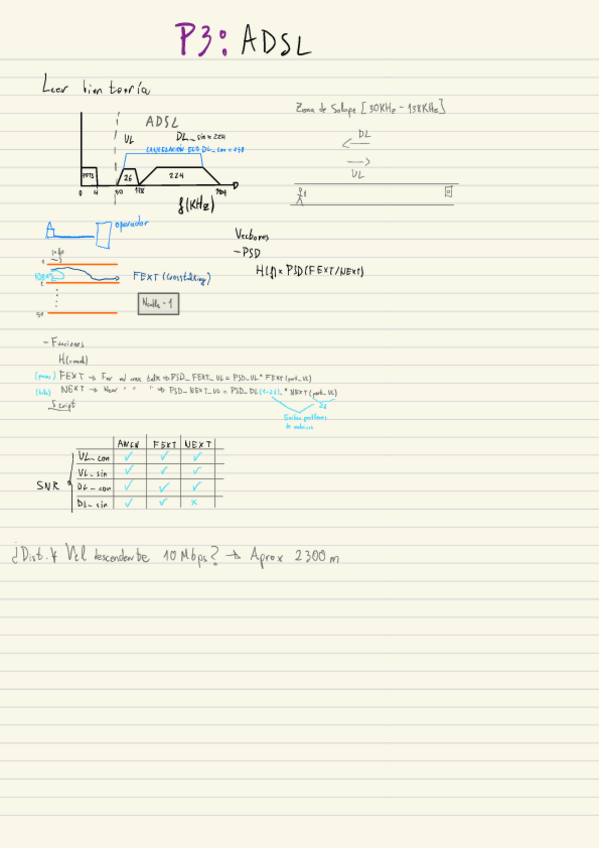 P3: ADSL
Leer bien teoría
Zona de Solape [30KHz - 138KHz]
ADSL
UL
DL_sin = 224
CANCELACIÓN ECO DL_con = 250
26
224
0
4
138
f(KHz)
DL
UL
operador
info
FEXT (Crosstalking)
Nhilos - 1
50
Vectores
- PSD
H(f) * PSD (FEXT/NEXT)
- Funciones
H(canal)
FEXT → Far end cross talk → PSD_FEXT_UL = PSD_UL * FEXT(port_UL)
NEXT → Near " " " → PSD_NEXT_UL = PSD_DL(1-26) .* NEXT(port_UL)
Script
26
AWGN FEXT NEXT
UL_con ✓ ✓ ✓
UL_sin ✓ ✓ ✓
SNR
DL_con ✓ ✓ ✓
DL_sin ✓ ✓ x
¿Dist. y Vel descendente 10 Mbps? → Aprox 2300 m